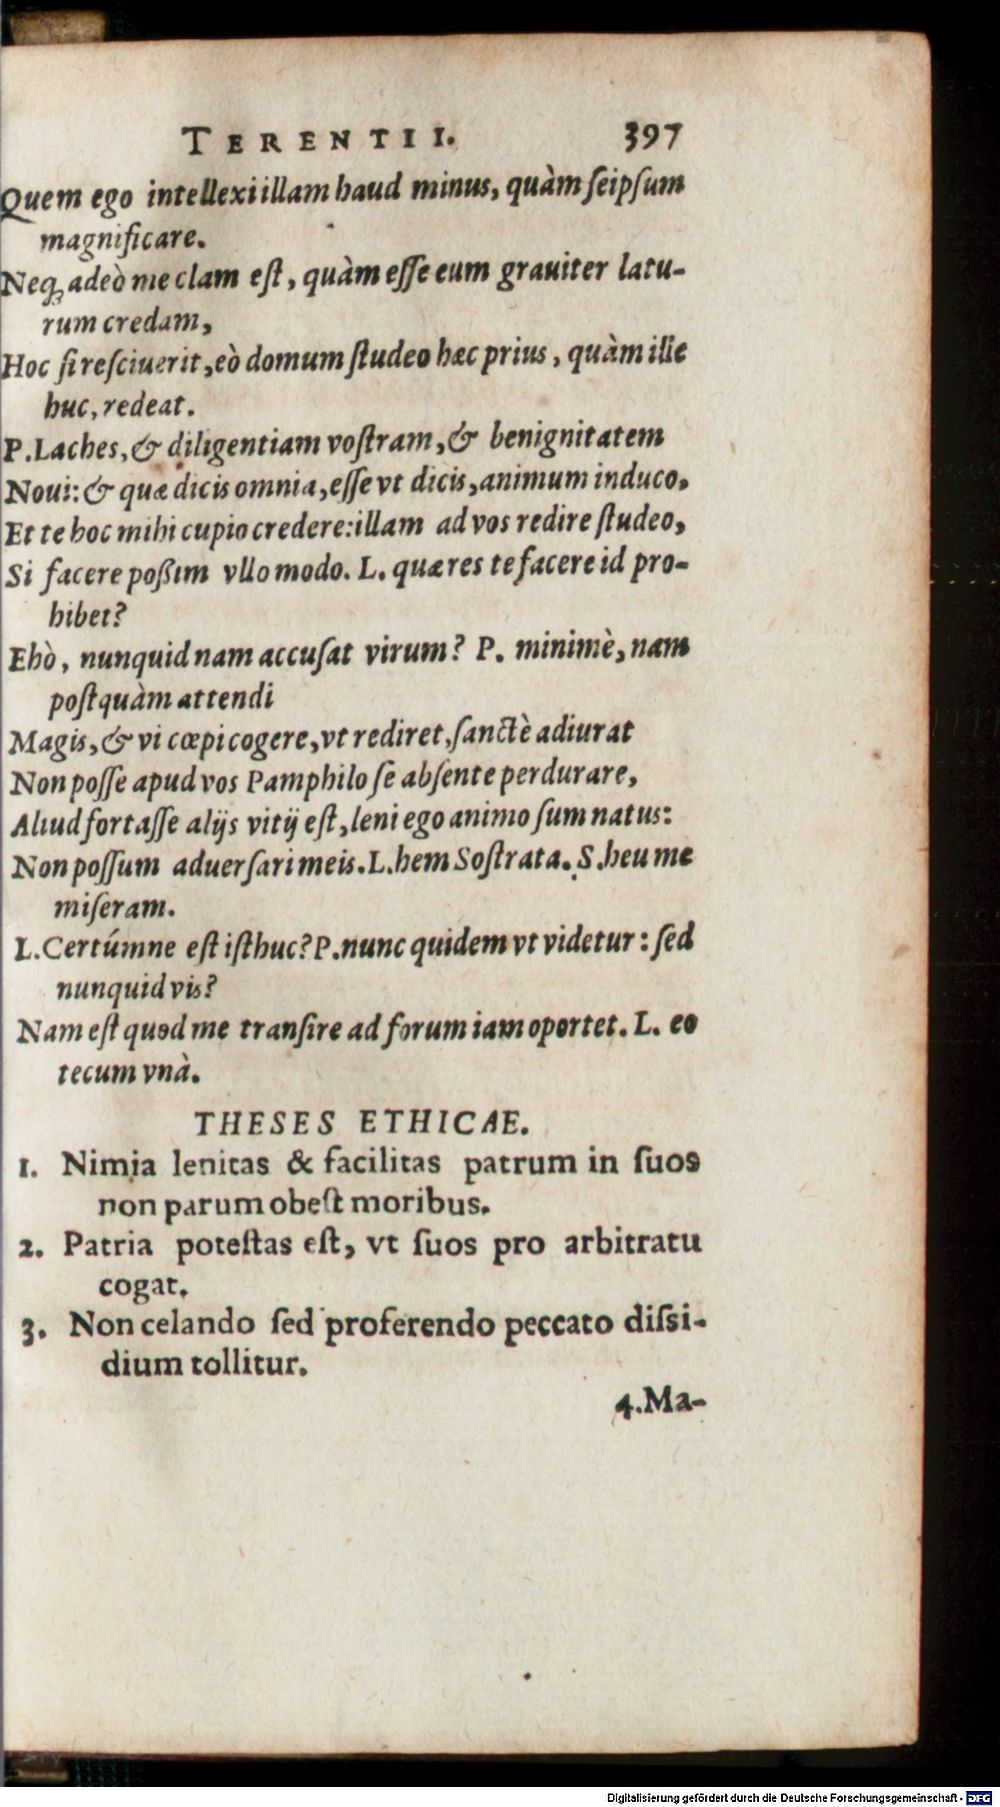 TERENTII. 397
Quem ego intellexi illam haud minus, quàm ſeipſum
magnificare.
Neq; adeò me clam eſt, quàm eſſe eum grauiter latu-
rum credam,
Hoc ſi reſciuerit, eò domum ſtudeo hæc prius, quàm ille
huc, redeat.
P. Laches, & diligentiam voſtram, & benignitatem
Noui: & quæ dicis omnia, eſſe vt dicis, animum induco,
Et te hoc mihi cupio credere: illam ad vos redire ſtudeo,
Si facere poßim vllo modo. L. quæ res te facere id pro-
hibet?
Ehò, nunquid nam accuſat virum? P. minimè, nam
poſtquàm attendi
Magis, & vi cœpi cogere, vt rediret, ſanctè adiurat
Non poſſe apud vos Pamphilo ſe abſente perdurare,
Aliud fortaſſe alijs vitij eſt, leni ego animo ſum natus:
Non poſſum aduerſari meis. L. hem Soſtrata. S. heu me
miſeram.
L. Certúmne eſt iſthuc? P. nunc quidem vt videtur: ſed
nunquid vis?
Nam eſt quod me tranſire ad forum iam oportet. L. eo
tecum vnà.
THESES ETHICAE.
1. Nimia lenitas & facilitas patrum in ſuos
non parum obeſt moribus.
2. Patria poteſtas eſt, vt ſuos pro arbitratu
cogat.
3. Non celando ſed proferendo peccato diſsi-
dium tollitur.
4. Ma-
Digitalisierung gefördert durch die Deutsche Forschungsgemeinschaft - DFG